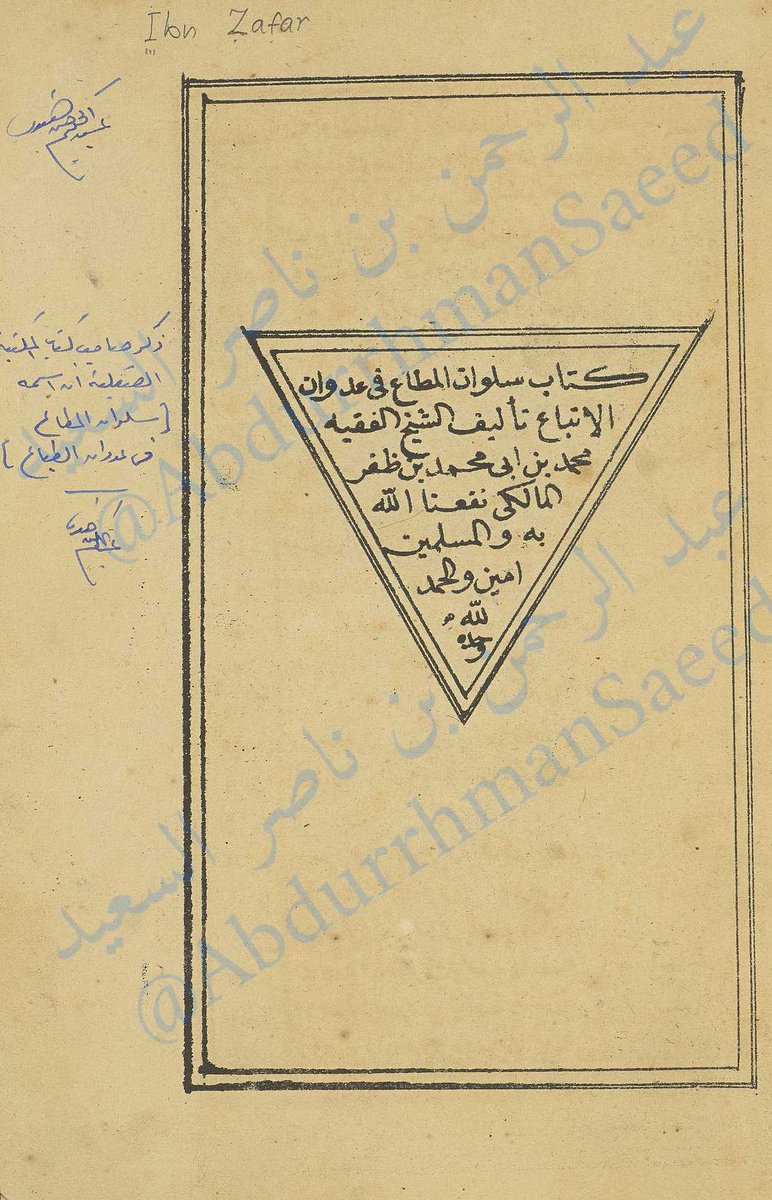 Ibn Zafar
كتاب سلوان المطاع فى عدوان
الاتباع تأليف الشيخ الفقيه
محمد بن ابى محمد بن ظفر
المالكى نفعنا الله
به والمسلمين
امين والحمد
لله
وحده
ذكر صاحب كتاب المكتبة
الصقلية أن اسمه
[سلوان المطاع
فى عدوان الطباع]
عبد الرحمن بن ناصر السعيد
@AbdurrhmanSaeed
عبد الرحمن بن ناصر السعيد
@AbdurrhmanSaeed